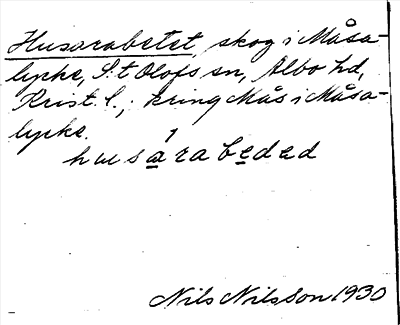 Husarabetet, skog i Måsa-
lycke, S:t Olofs sn, Albo hd,
Krist. l.; kring Mås i Måsa-
lycke.
husarabeded
Nils Nilsson 1930